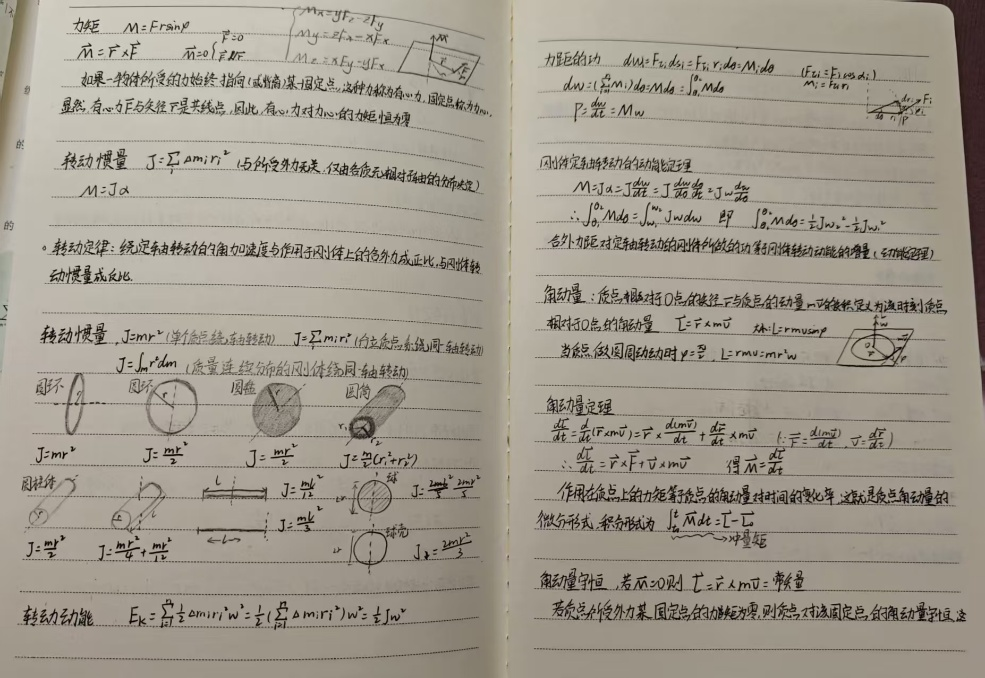 力矩 M=Frsinφ
M⃗=r⃗×F⃗ M⃗=0 { F⃗=0
r⃗∥F⃗
Mx=yFz-zFy
My=zFx-xFz
Mz=xFy-yFx
如果一物体所受的力始终指向(或背离)某一固定点,这种力称为有心力,固定点称为力心,
显然,有心力F与矢径r是共线点,因此,有心力对力心的力矩恒为零
转动惯量 J=∑Δmiri² (与所受外力无关,仅由各质元相对于轴的分布决定)
M=Jα
。转动定律:绕定轴转动的角加速度与作用于刚体上的合外力成正比,与刚体转
动惯量成反比.
转动惯量 J=mr² (单个质点绕轴转动) J=∑miri² (分立质点系绕同一轴转动)
J=∫m r²dm (质量连续分布的刚体绕同一轴转动)
圆环 圆环 圆盘 圆筒
r r r₁ r₂
J=mr² J=mr²/2 J=mr²/2 J=m/2(r₁²+r₂²)
圆柱体 l J=ml²/12 球 J=2mr²/5
J=ml²/3 球壳
J=mr²/2 J=mr²/4+ml²/12 J=2mr²/3
转动动能 Ek=∑½Δmiri²w²=½(∑Δmiri²)w²=½Jw²
力矩的功 dwi=Fτidsi=Fτiridθ=Midθ (Fτi=Ficosαi)
Mi=Fτiri
dw=(∑Mi)dθ=Mdθ=∫Mdθ
P=dw/dt=Mw
刚体定轴转动的动能定理
M=Jα=J dw/dt=J dw/dθ dθ/dt=Jw dw/dθ
∴∫Mdθ=∫Jwdw 即 ∫Mdθ=½Jw₂²-½Jw₁²
合外力矩对定轴转动的刚体所做的功等于刚体转动动能的增量(动能定理)
角动量:质点相对于O点的矢径r与质点的动量mv的矢积定义为该时刻质点
相对于O点的角动量 L⃗=r⃗×mv⃗ 大小:L=rmvsinφ
当质点做圆周运动时φ=π/2,L=rmv=mr²w
角动量定理
dL⃗/dt=d/dt(r⃗×mv⃗)=r⃗×d(mv⃗)/dt+dr⃗/dt×mv⃗ (∵F⃗=d(mv⃗)/dt, v⃗=dr⃗/dt)
∴dL⃗/dt=r⃗×F⃗+v⃗×mv⃗ 得M⃗=dL⃗/dt
作用在质点上的力矩等于质点的角动量对时间的变化率,这就是质点角动量的
微分形式,积分形式为 ∫M⃗dt=L⃗-L⃗₀
冲量矩
角动量守恒,若M⃗=0则 L⃗=r⃗×mv⃗=常矢量
若质点所受外力某固定点的力矩为零,则质点对该固定点的角动量守恒,这